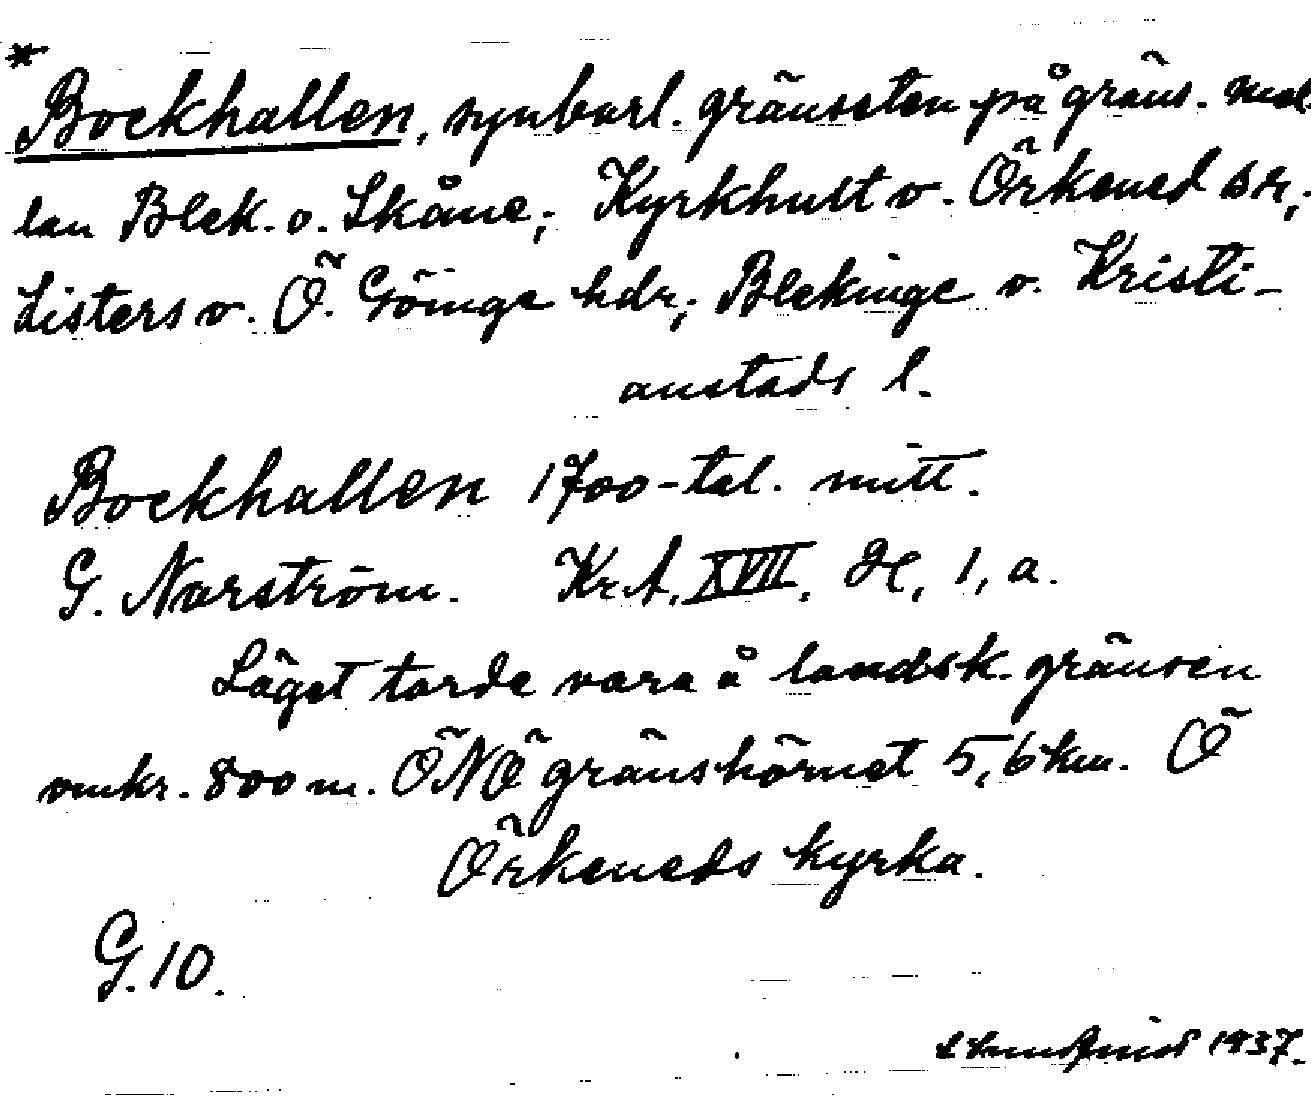 *
Bockhallen, synbarl. gränssten på gräns. mel-
lan Blek. o. Skåne; Kyrkhult o. Örkened snr;
Listers o. Ö. Göinge hdr; Blekinge o. Kristi-
anstads l.
Bockhallen 1700-tal. mitt.
G. Norström. Kr.A. XVII, H, 1, a.
Läget torde vara å landsk. gränsen
omkr. 800 m. ÖNÖ gränshörnet 5,6 km. Ö
Örkeneds kyrka.
G. 10.
1937.